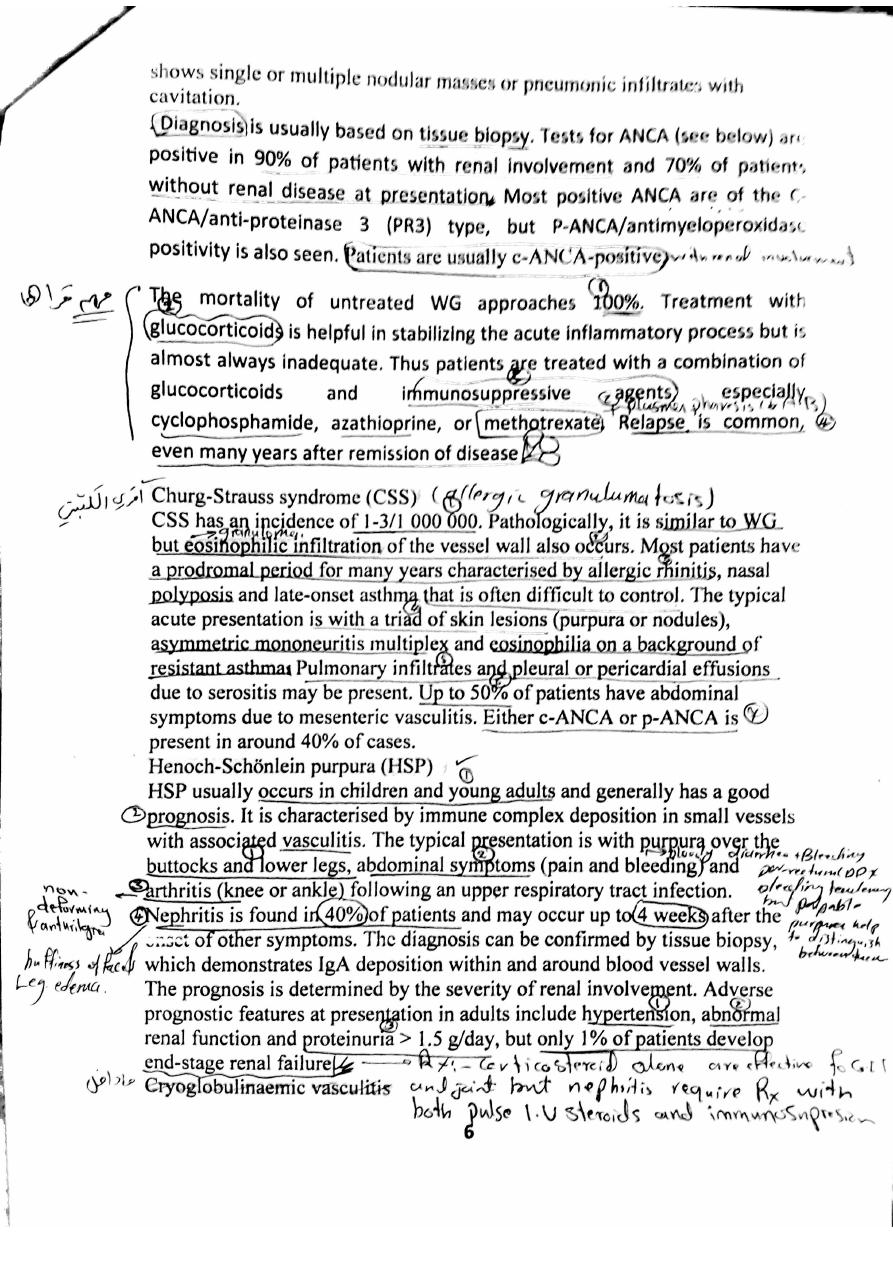 shows single or multiple nodular masses or pneumonic infiltrates with
cavitation.
Diagnosis is usually based on tissue biopsy. Tests for ANCA (see below) are
positive in 90% of patients with renal involvement and 70% of patients
without renal disease at presentation. Most positive ANCA are of the C-
ANCA/anti-proteinase 3 (PR3) type, but P-ANCA/antimyeloperoxidase
positivity is also seen. Patients are usually c-ANCA-positive) with renal involvement
مهم
① The mortality of untreated WG approaches 100%. Treatment with
glucocorticoids is helpful in stabilizing the acute inflammatory process but is
almost always inadequate. Thus patients are treated with a combination of
glucocorticoids and immunosuppressive agents, especially
+ plasmapharesis
cyclophosphamide, azathioprine, or methotrexate. Relapse is common, ④
even many years after remission of disease
Churg-Strauss syndrome (CSS) (allergic granulumatosis)
CSS has an incidence of 1-3/1 000 000. Pathologically, it is similar to WG
granuloma
but eosinophilic infiltration of the vessel wall also occurs. Most patients have
a prodromal period for many years characterised by allergic rhinitis, nasal
polyposis and late-onset asthma that is often difficult to control. The typical
acute presentation is with a triad of skin lesions (purpura or nodules),
asymmetric mononeuritis multiplex and eosinophilia on a background of
resistant asthma. Pulmonary infiltrates and pleural or pericardial effusions
due to serositis may be present. Up to 50% of patients have abdominal
symptoms due to mesenteric vasculitis. Either c-ANCA or p-ANCA is
present in around 40% of cases.
Henoch-Schönlein purpura (HSP) ①
HSP usually occurs in children and young adults and generally has a good
② prognosis. It is characterised by immune complex deposition in small vessels
with associated vasculitis. The typical presentation is with purpura over the
① ② bloody diarrhea + Bleeching
buttocks and lower legs, abdominal symptoms (pain and bleeding) and
③ arthritis (knee or ankle) following an upper respiratory tract infection.
bleeding tendency
but palpable
purpura help
to distinguish
between them
non-
deforming
④ Nephritis is found in 40% of patients and may occur up to 4 weeks after the
onset of other symptoms. The diagnosis can be confirmed by tissue biopsy,
buffiness of face
Leg edema.
which demonstrates IgA deposition within and around blood vessel walls.
The prognosis is determined by the severity of renal involvement. Adverse
① ②
prognostic features at presentation in adults include hypertension, abnormal
③
renal function and proteinuria > 1.5 g/day, but only 1% of patients develop
end-stage renal failure Rx:- Corticosteroid alone are effective for GIT
Cryoglobulinaemic vasculitis and joint but nephritis require Rx with
both pulse I.V steroids and immunosupresion
6